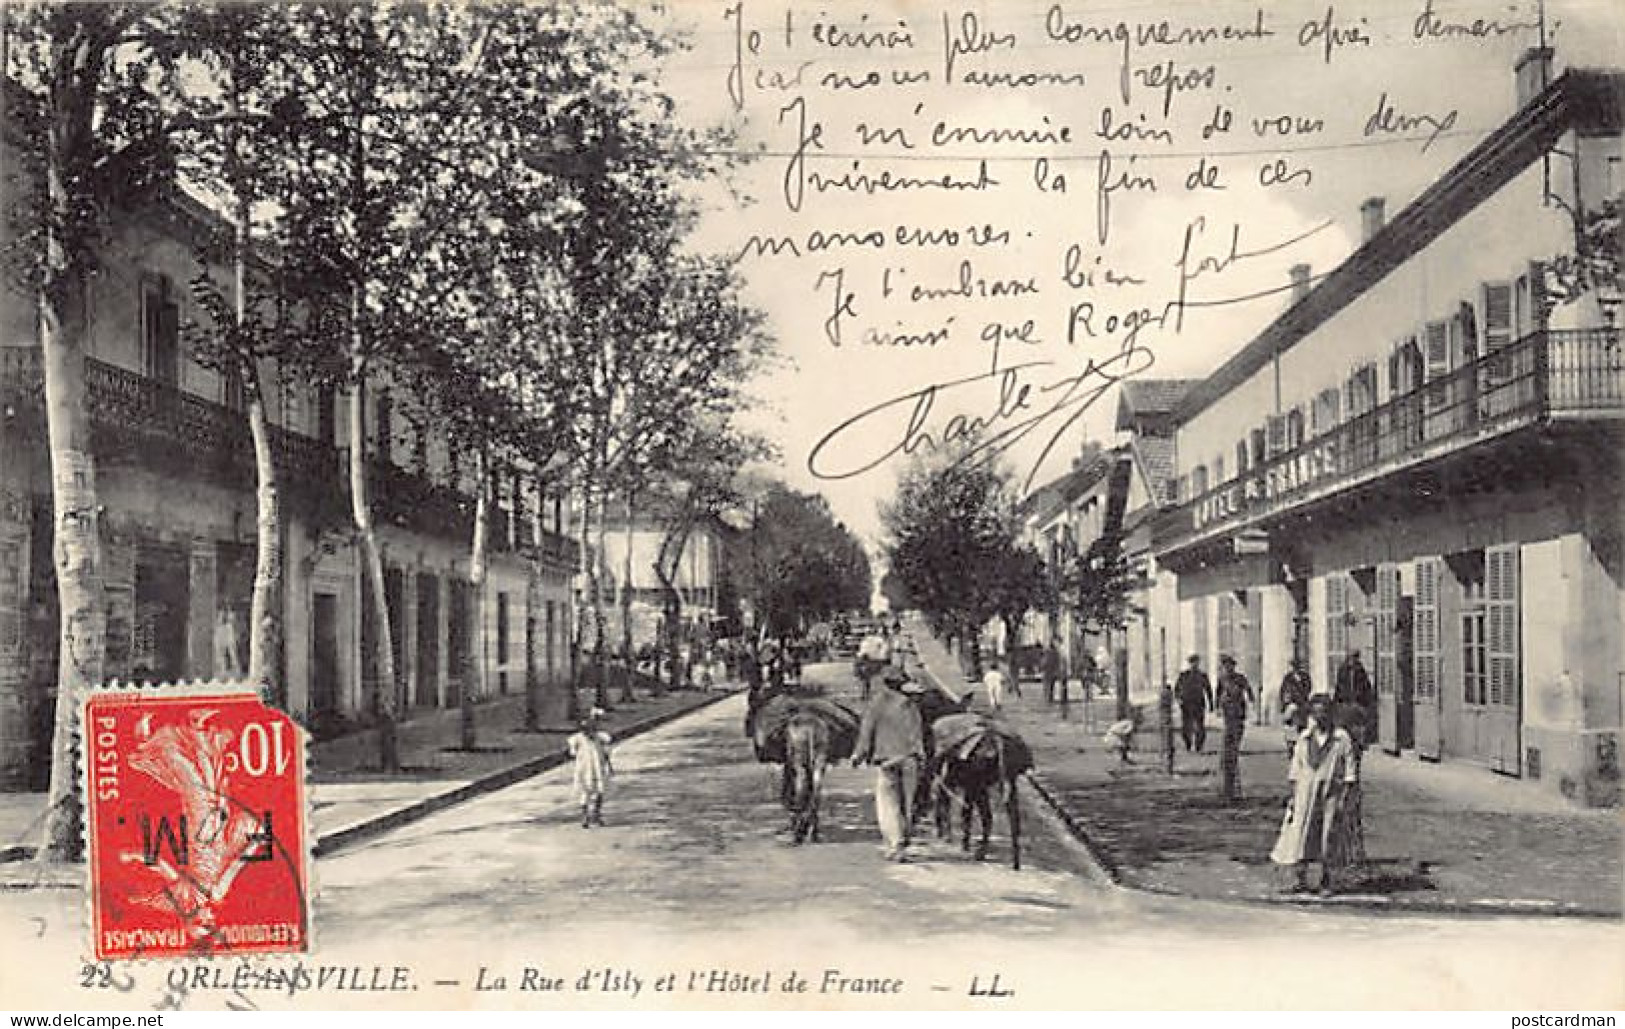 Je t'écrirai plus longuement après demain
car nous aurons repos.
Je m'ennuie loin de vous deux
vivement la fin de ces
manoeuvres.
Je t'embrasse bien fort
ainsi que Roger
Charles
HOTEL DE FRANCE
10c
POSTES
F.M.
REPUBLIQUE FRANÇAISE
22 ORLÉANSVILLE. — La Rue d'Isly et l'Hôtel de France — LL.
delcampe.net
postcardman